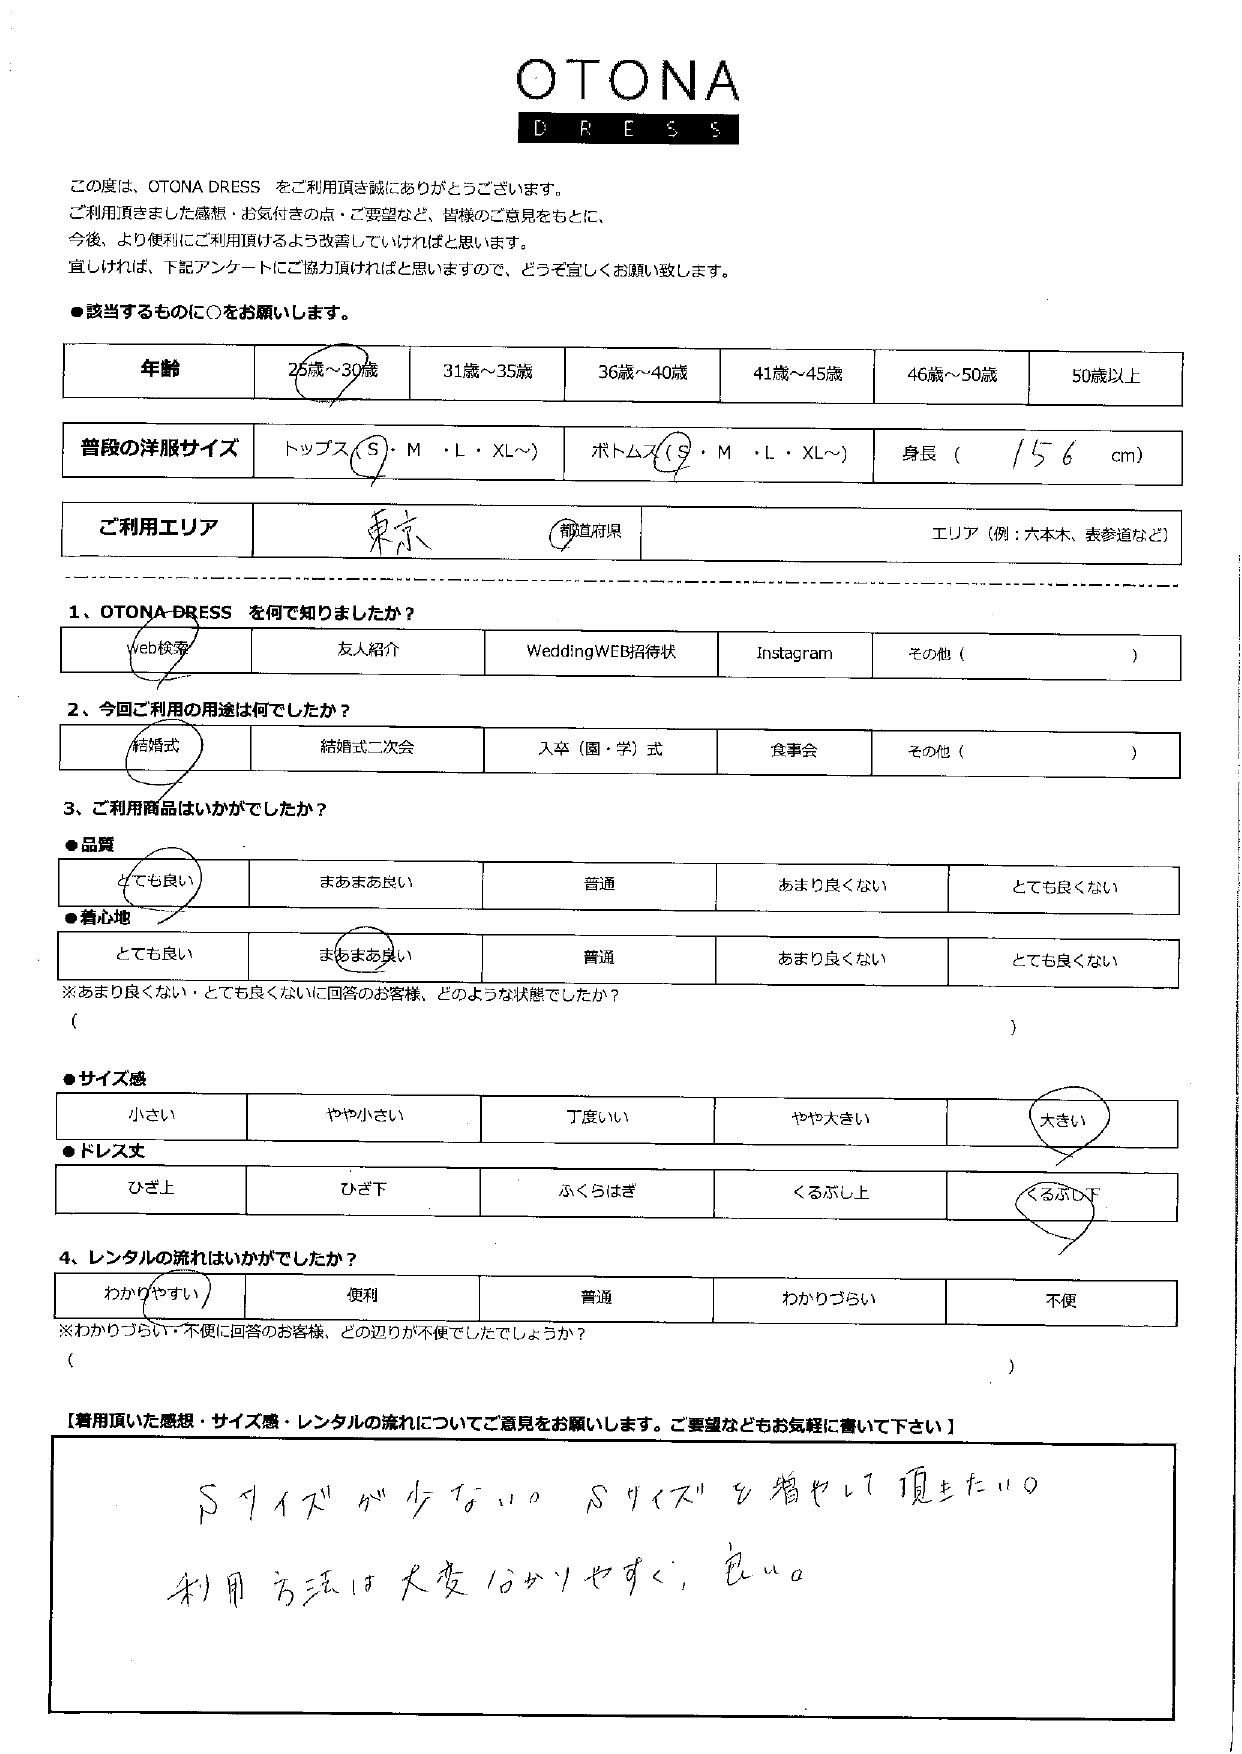 OTONA
DRESS
この度は、OTONA DRESS　をご利用頂き誠にありがとうございます。
ご利用頂きました感想・お気付きの点・ご要望など、皆様のご意見をもとに、
今後、より便利にご利用頂けるよう改善していければと思います。
宜しければ、下記アンケートにご協力頂ければと思いますので、どうぞ宜しくお願い致します。
●該当するものに○をお願いします。
年齢 25歳～30歳 31歳～35歳 36歳～40歳 41歳～45歳 46歳～50歳 50歳以上
普段の洋服サイズ トップス(S・M ・L・XL～) ボトムス(S・M ・L・XL～) 身長 ( 156 cm)
ご利用エリア 東京 都道府県 エリア（例：六本木、表参道など）
1、OTONA DRESS　を何で知りましたか？
web検索 友人紹介 WeddingWEB招待状 Instagram その他（ ）
2、今回ご利用の用途は何でしたか？
結婚式 結婚式二次会 入卒（園・学）式 食事会 その他（ ）
3、ご利用商品はいかがでしたか？
●品質
とても良い まあまあ良い 普通 あまり良くない とても良くない
●着心地
とても良い まあまあ良い 普通 あまり良くない とても良くない
※あまり良くない・とても良くないに回答のお客様、どのような状態でしたか？
( )
●サイズ感
小さい やや小さい 丁度いい やや大きい 大きい
●ドレス丈
ひざ上 ひざ下 ふくらはぎ くるぶし上 くるぶし下
4、レンタルの流れはいかがでしたか？
わかりやすい 便利 普通 わかりづらい 不便
※わかりづらい・不便に回答のお客様、どの辺りが不便でしたでしょうか？
( )
【着用頂いた感想・サイズ感・レンタルの流れについてご意見をお願いします。ご要望などもお気軽に書いて下さい】
Sサイズが少ない。Sサイズを増やして頂きたい。
利用方法は大変分かりやすく、良い。